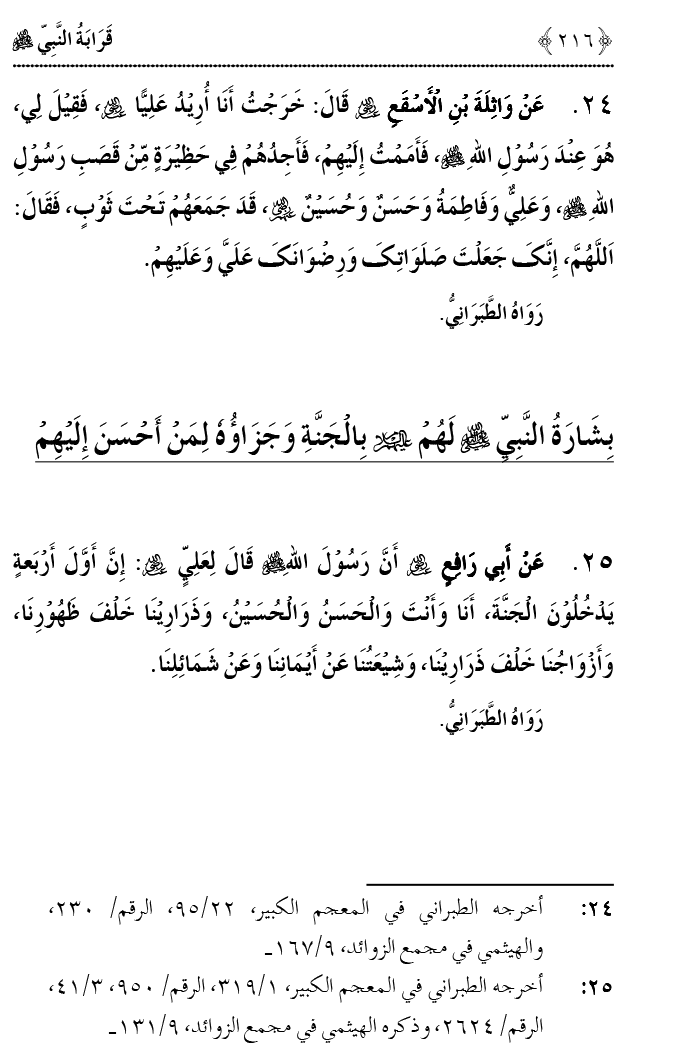 ﴿٢١٦﴾ قَرَابَةُ النَّبِيِّ ﷺ
٢٤. عَنْ وَاثِلَةَ بْنِ الْأَسْقَعِ رضي الله عنه قَالَ: خَرَجْتُ أَنَا أُرِيْدُ عَلِيًّا رضي الله عنه، فَقِيْلَ لِي،
هُوَ عِنْدَ رَسُوْلِ اللهِ ﷺ، فَأَمَمْتُ إِلَيْهِمْ، فَأَجِدُهُمْ فِي حَظِيْرَةٍ مِّنْ قَصَبِ رَسُوْلِ
اللهِ ﷺ، وَعَلِيٌّ وَفَاطِمَةُ وَحَسَنٌ وَحُسَيْنٌ رضي الله عنهم، قَدَ جَمَعَهُمْ تَحْتَ ثَوْبٍ، فَقَالَ:
اَللَّهُمَّ، إِنَّكَ جَعَلْتَ صَلَوَاتِكَ وَرِضْوَانَكَ عَلَيَّ وَعَلَيْهِمْ.
رَوَاهُ الطَّبَرَانِيُّ.
بِشَارَةُ النَّبِيِّ ﷺ لَهُمْ عليهم السلام بِالْجَنَّةِ وَجَزَاؤُهٗ لِمَنْ أَحْسَنَ إِلَيْهِمْ
٢٥. عَنْ أَبِي رَافِعٍ رضي الله عنه أَنَّ رَسُوْلَ اللهِ ﷺ قَالَ لِعَلِيٍّ رضي الله عنه: إِنَّ أَوَّلَ أَرْبَعةٍ
يَدْخُلُوْنَ الْجَنَّةَ، أَنَا وَأَنْتَ وَالْحَسَنُ وَالْحُسَيْنُ، وَذَرَارِيْنَا خَلْفَ ظَهُوْرِنَا،
وَأَزْوَاجُنَا خَلْفَ ذَرَارِيْنَا، وَشِيْعَتُنَا عَنْ أَيْمَانِنَا وَعَنْ شَمَائِلِنَا.
رَوَاهُ الطَّبَرَانِيُّ.
٢٤: أخرجه الطبراني في المعجم الكبير، ٢٢/٩٥، الرقم/ ٢٣٠،
والهيثمي في مجمع الزوائد، ٩/١٦٧ـ
٢٥: أخرجه الطبراني في المعجم الكبير، ١/٣١٩، الرقم/ ٩٥٠، ٣/٤١،
الرقم/ ٢٦٢٤، وذكره الهيثمي في مجمع الزوائد، ٩/١٣١ـ